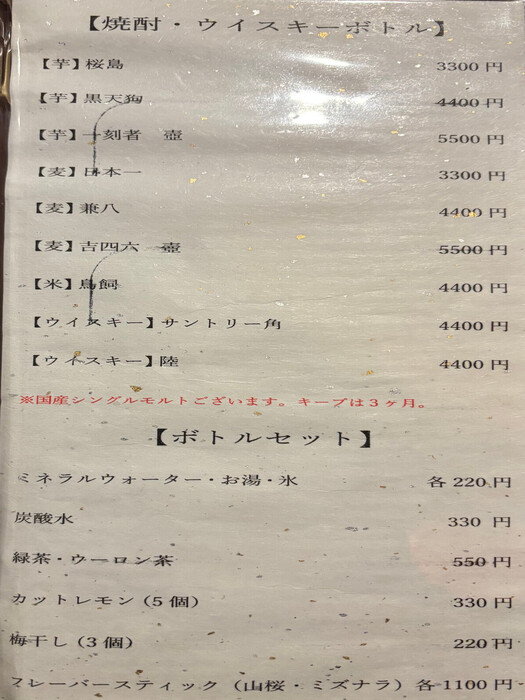 【焼酎・ウイスキーボトル】
【芋】桜島 3300 円
【芋】黒天狗 4400 円
【芋】一刻者 壺 5500 円
【麦】日本一 3300 円
【麦】兼八 4400 円
【麦】吉四六 壺 5500 円
【米】鳥飼 4400 円
【ウイスキー】サントリー角 4400 円
【ウイスキー】陸 4400 円
※国産シングルモルトございます。キープは３ヶ月。
【ボトルセット】
ミネラルウォーター・お湯・氷 各 220 円
炭酸水 330 円
緑茶・ウーロン茶 550 円
カットレモン (5 個) 330 円
梅干し (3 個) 220 円
フレーバースティック (山桜・ミズナラ) 各 1100 円